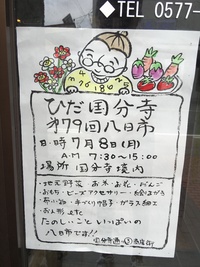 ◆TEL 0577-
ひだ国分寺
第79回八日市
日時 7月8日(月)
AM 7:30~15:00
場所 国分寺境内
・地元野菜 お米・お花・だんご
おもち・ビーズアクセサリー・絵はがき
布小物・手づくり帽子・ガラス細工
お人形 etc
たのしいこといっぱいの
八日市です!!